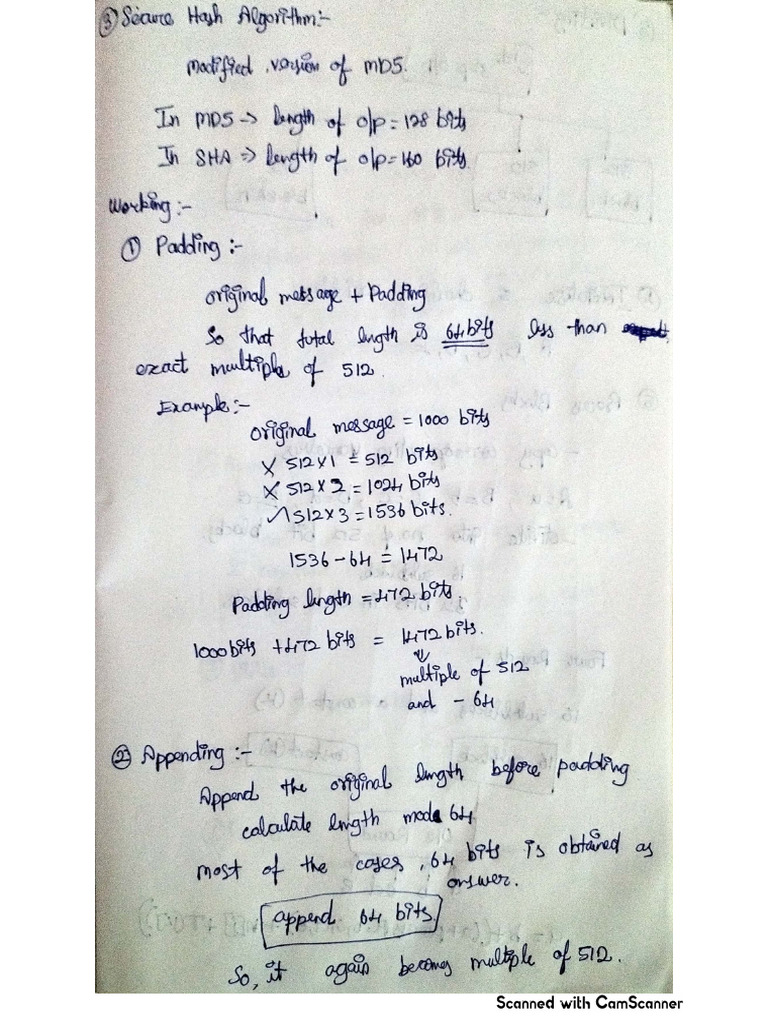 ③ Secure Hash Algorithm:-
modified version of MD5.
In MD5 → length of o/p = 128 bits
In SHA ⇒ length of o/p = 160 bits
Working :-
① Padding :-
original message + Padding
So that total length is 64 bits less than
exact multiples of 512.
Example:-
original message = 1000 bits
✗ 512 x 1 = 512 bits
✗ 512 x 2 = 1024 bits
✓ 512 x 3 = 1536 bits.
1536 - 64 = 1472
Padding length = 472 bits.
1000 bits + 472 bits = 1472 bits.
⇓
multiple of 512
and - 64
② Appending :-
Append the original length before padding
calculate length mod 64
most of the cases, 64 bits is obtained as
answer.
append 64 bits.
So, it again becomes multiple of 512.
Scanned with CamScanner